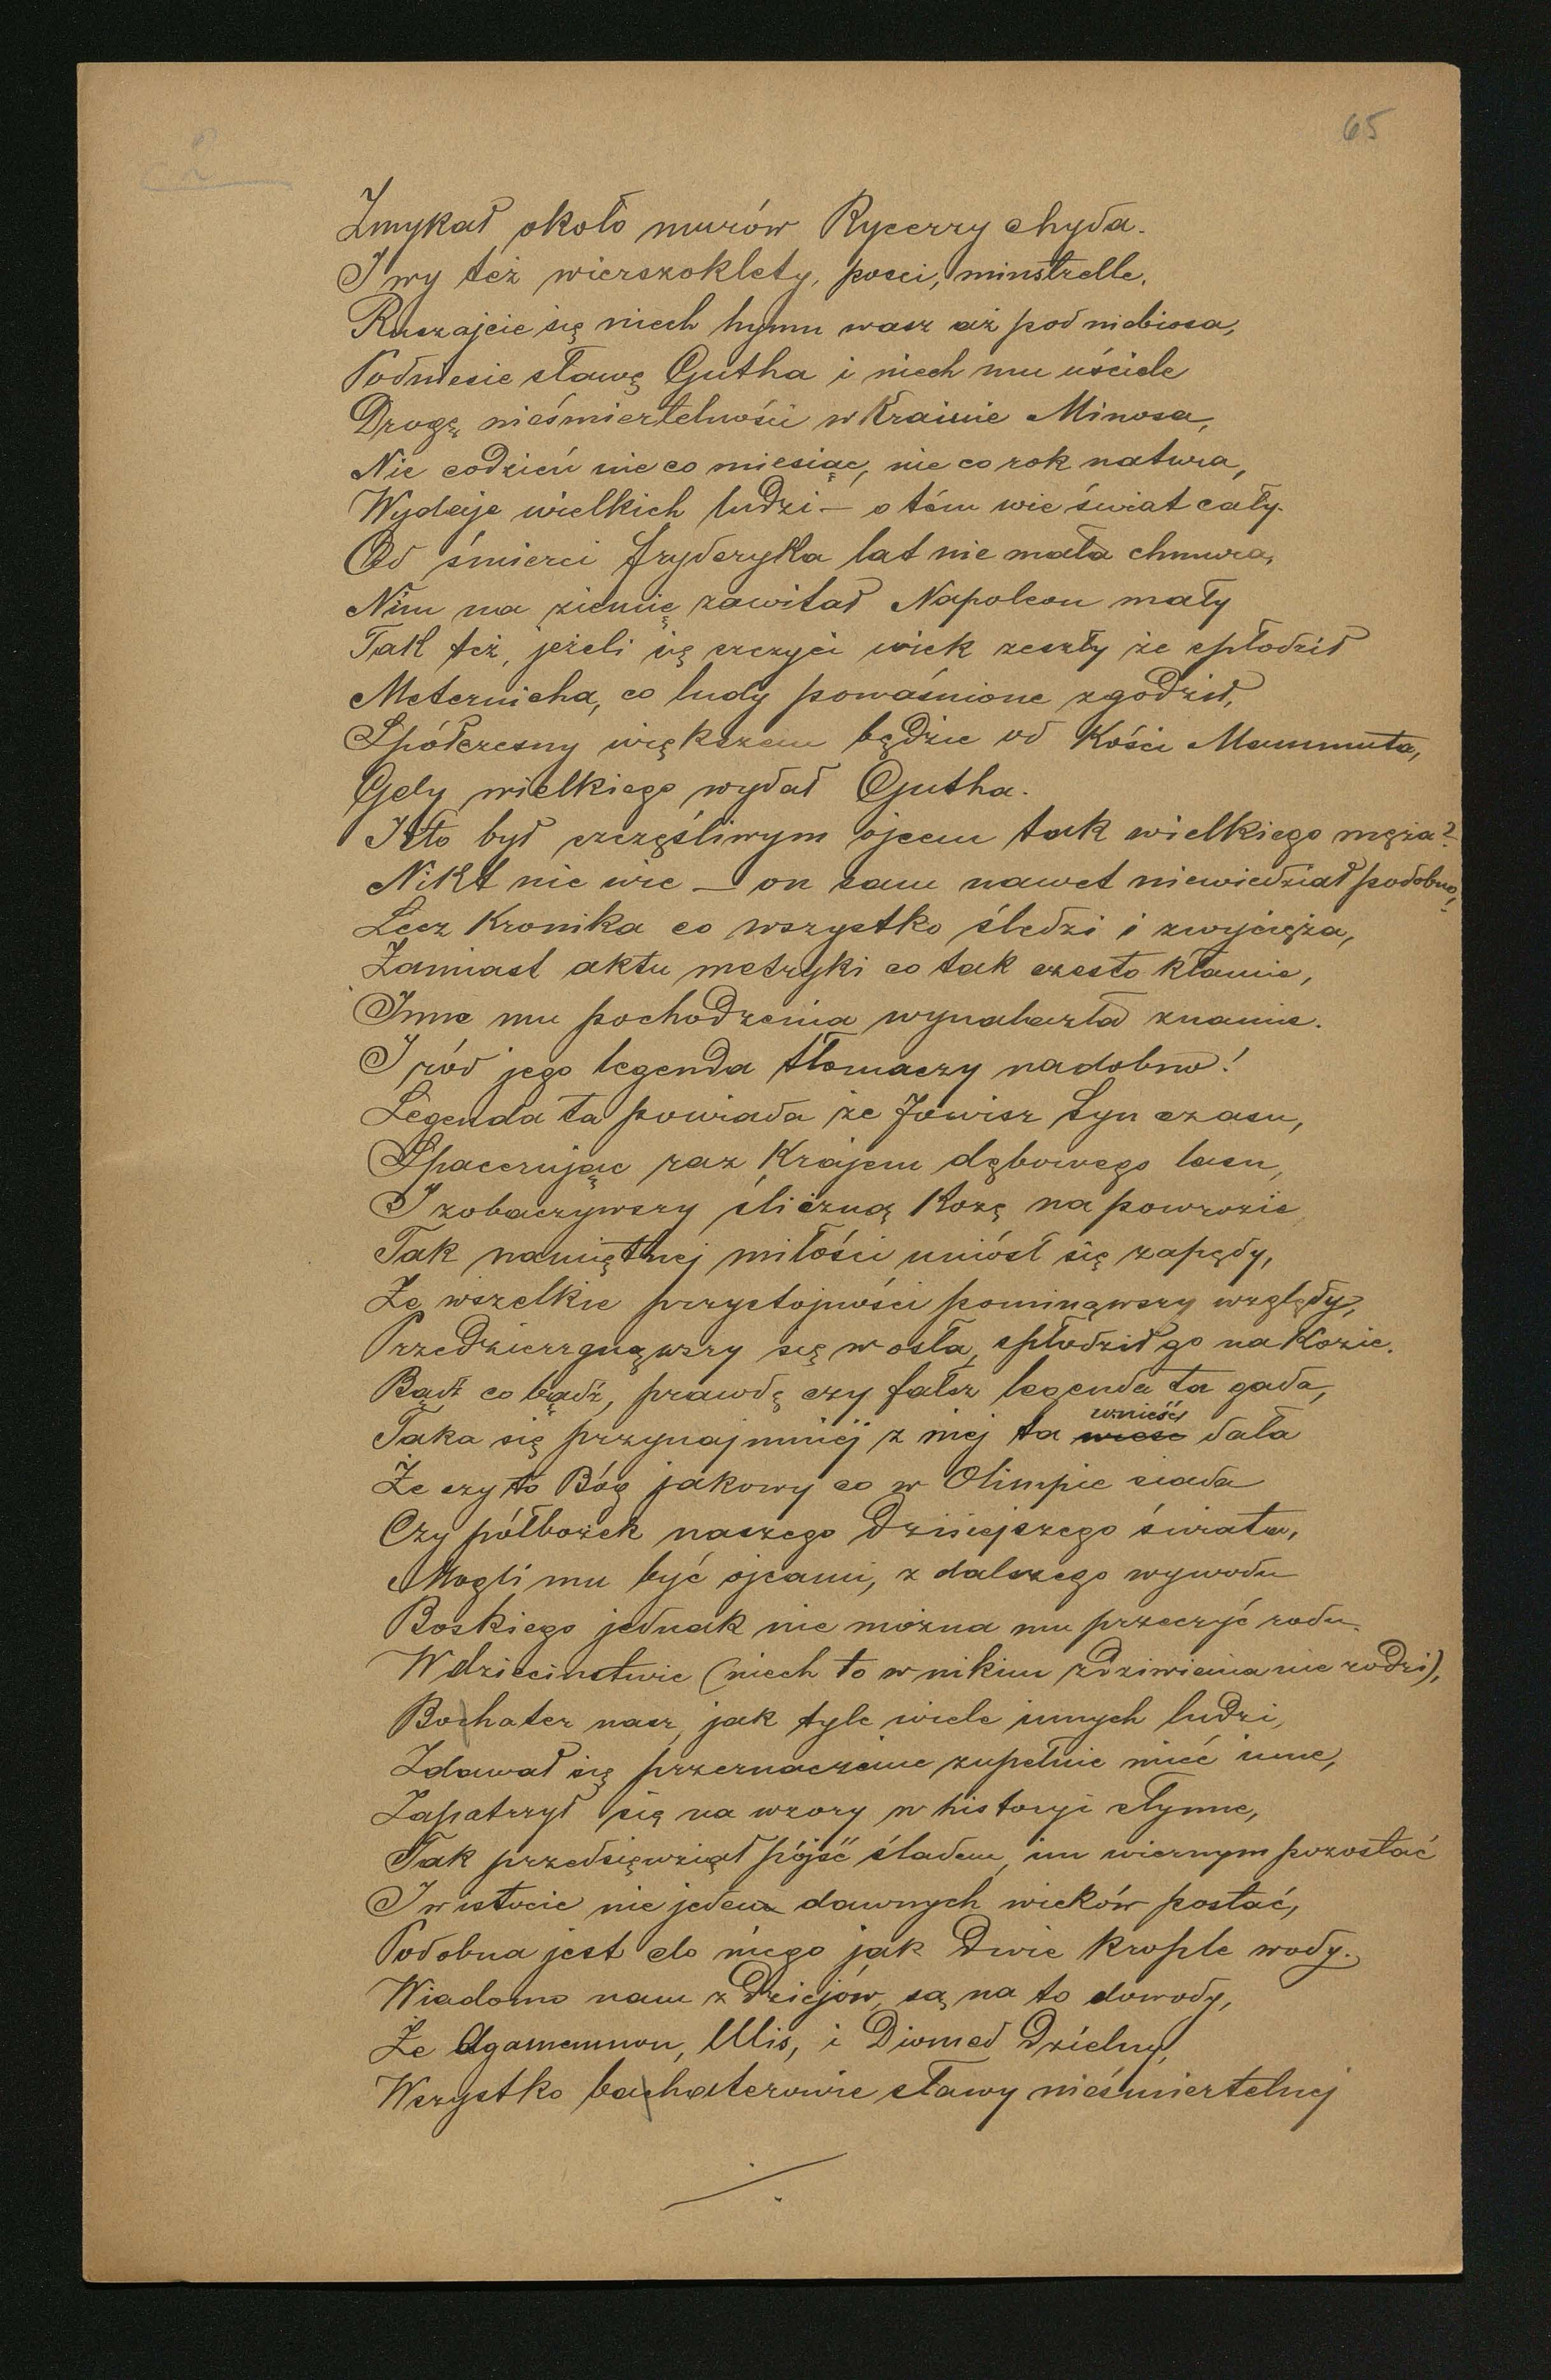 65
2
Zmykał około murów Rycerzy chyda.
I wy też wierszoklety, poeci, minstrelle,
Ruszajcie się niech hymn wasz aż pod niebiosa,
Podniesie sławę Gutha i niech mu uściele
Drogę nieśmiertelności w Krainie Minosa,
Nie codzień nie co miesiąc, nie co rok natura,
Wydaje wielkich ludzi — o tém wie świat cały.
Od śmierci fryderyka lat nie mała chmura,
Nim na ziemię zawitał Napoleon mały
Tak też, jeżeli się szczyci wiek zeszły że spłodził
Meternicha, co ludy powaśnione zgodził,
Spółczesny większem będzie od Kości Mammuta,
Gdy wielkiego wydał Gutha.
Kto był szczęśliwym ojcem tak wielkiego męża?
Nikt nie wie — on sam nawet niewiedział podobno,
Lecz Kronika co wszystko śledzi i zwycięża,
Zamiast aktu metryki co tak często kłamie,
Inne mu pochodzenia wynalazła znamie.
I ród jego legenda tłomaczy nadobno!
Legenda ta powiada że Jowisz Syn czasu,
Spacerując raz Krajem dębowego lasu,
I zobaczywszy śliczną Kozę na powrozie
Tak namiętnej miłości uniósł się zapędy,
Że wszelkie przystojności pominąwszy względy,
Przedzierzgnąwszy się w osła, spłodził go na Kozie.
Bądź co bądź, prawdę czy fałsz legenda ta gada,
Taka się przynajmniéj z niej ta wieść wznieść dała
Że czy to Bóg jakowy co w Olimpie siada
Czy półbożek naszego dzisiejszego świata,
Mogli mu być ojcami, z dalszego wywodu
Boskiego jednak nie można mu przeczyć rodu.
W dziecinstwie (niech to w nikim zdziwienia nie rodzi),
Bochater nasz, jak tyle wiele innych ludzi,
Zdawał się przeznaczenie zupełnie mieć inne,
Zapatrzył się na wzory w historyi słynne,
Tak przedsięwziął pójść śladem, im wiernym pozostać
I w istocie nie jedena dawnych wieków postać,
Podobna jest do niego jak dwie krople wody.
Wiadomo nam z Dziejów, są na to dowody,
Że Agamemnon, Ulis, i Diomed Dzielny,
Wszystko bochaterowie sławy nieśmiertelnej